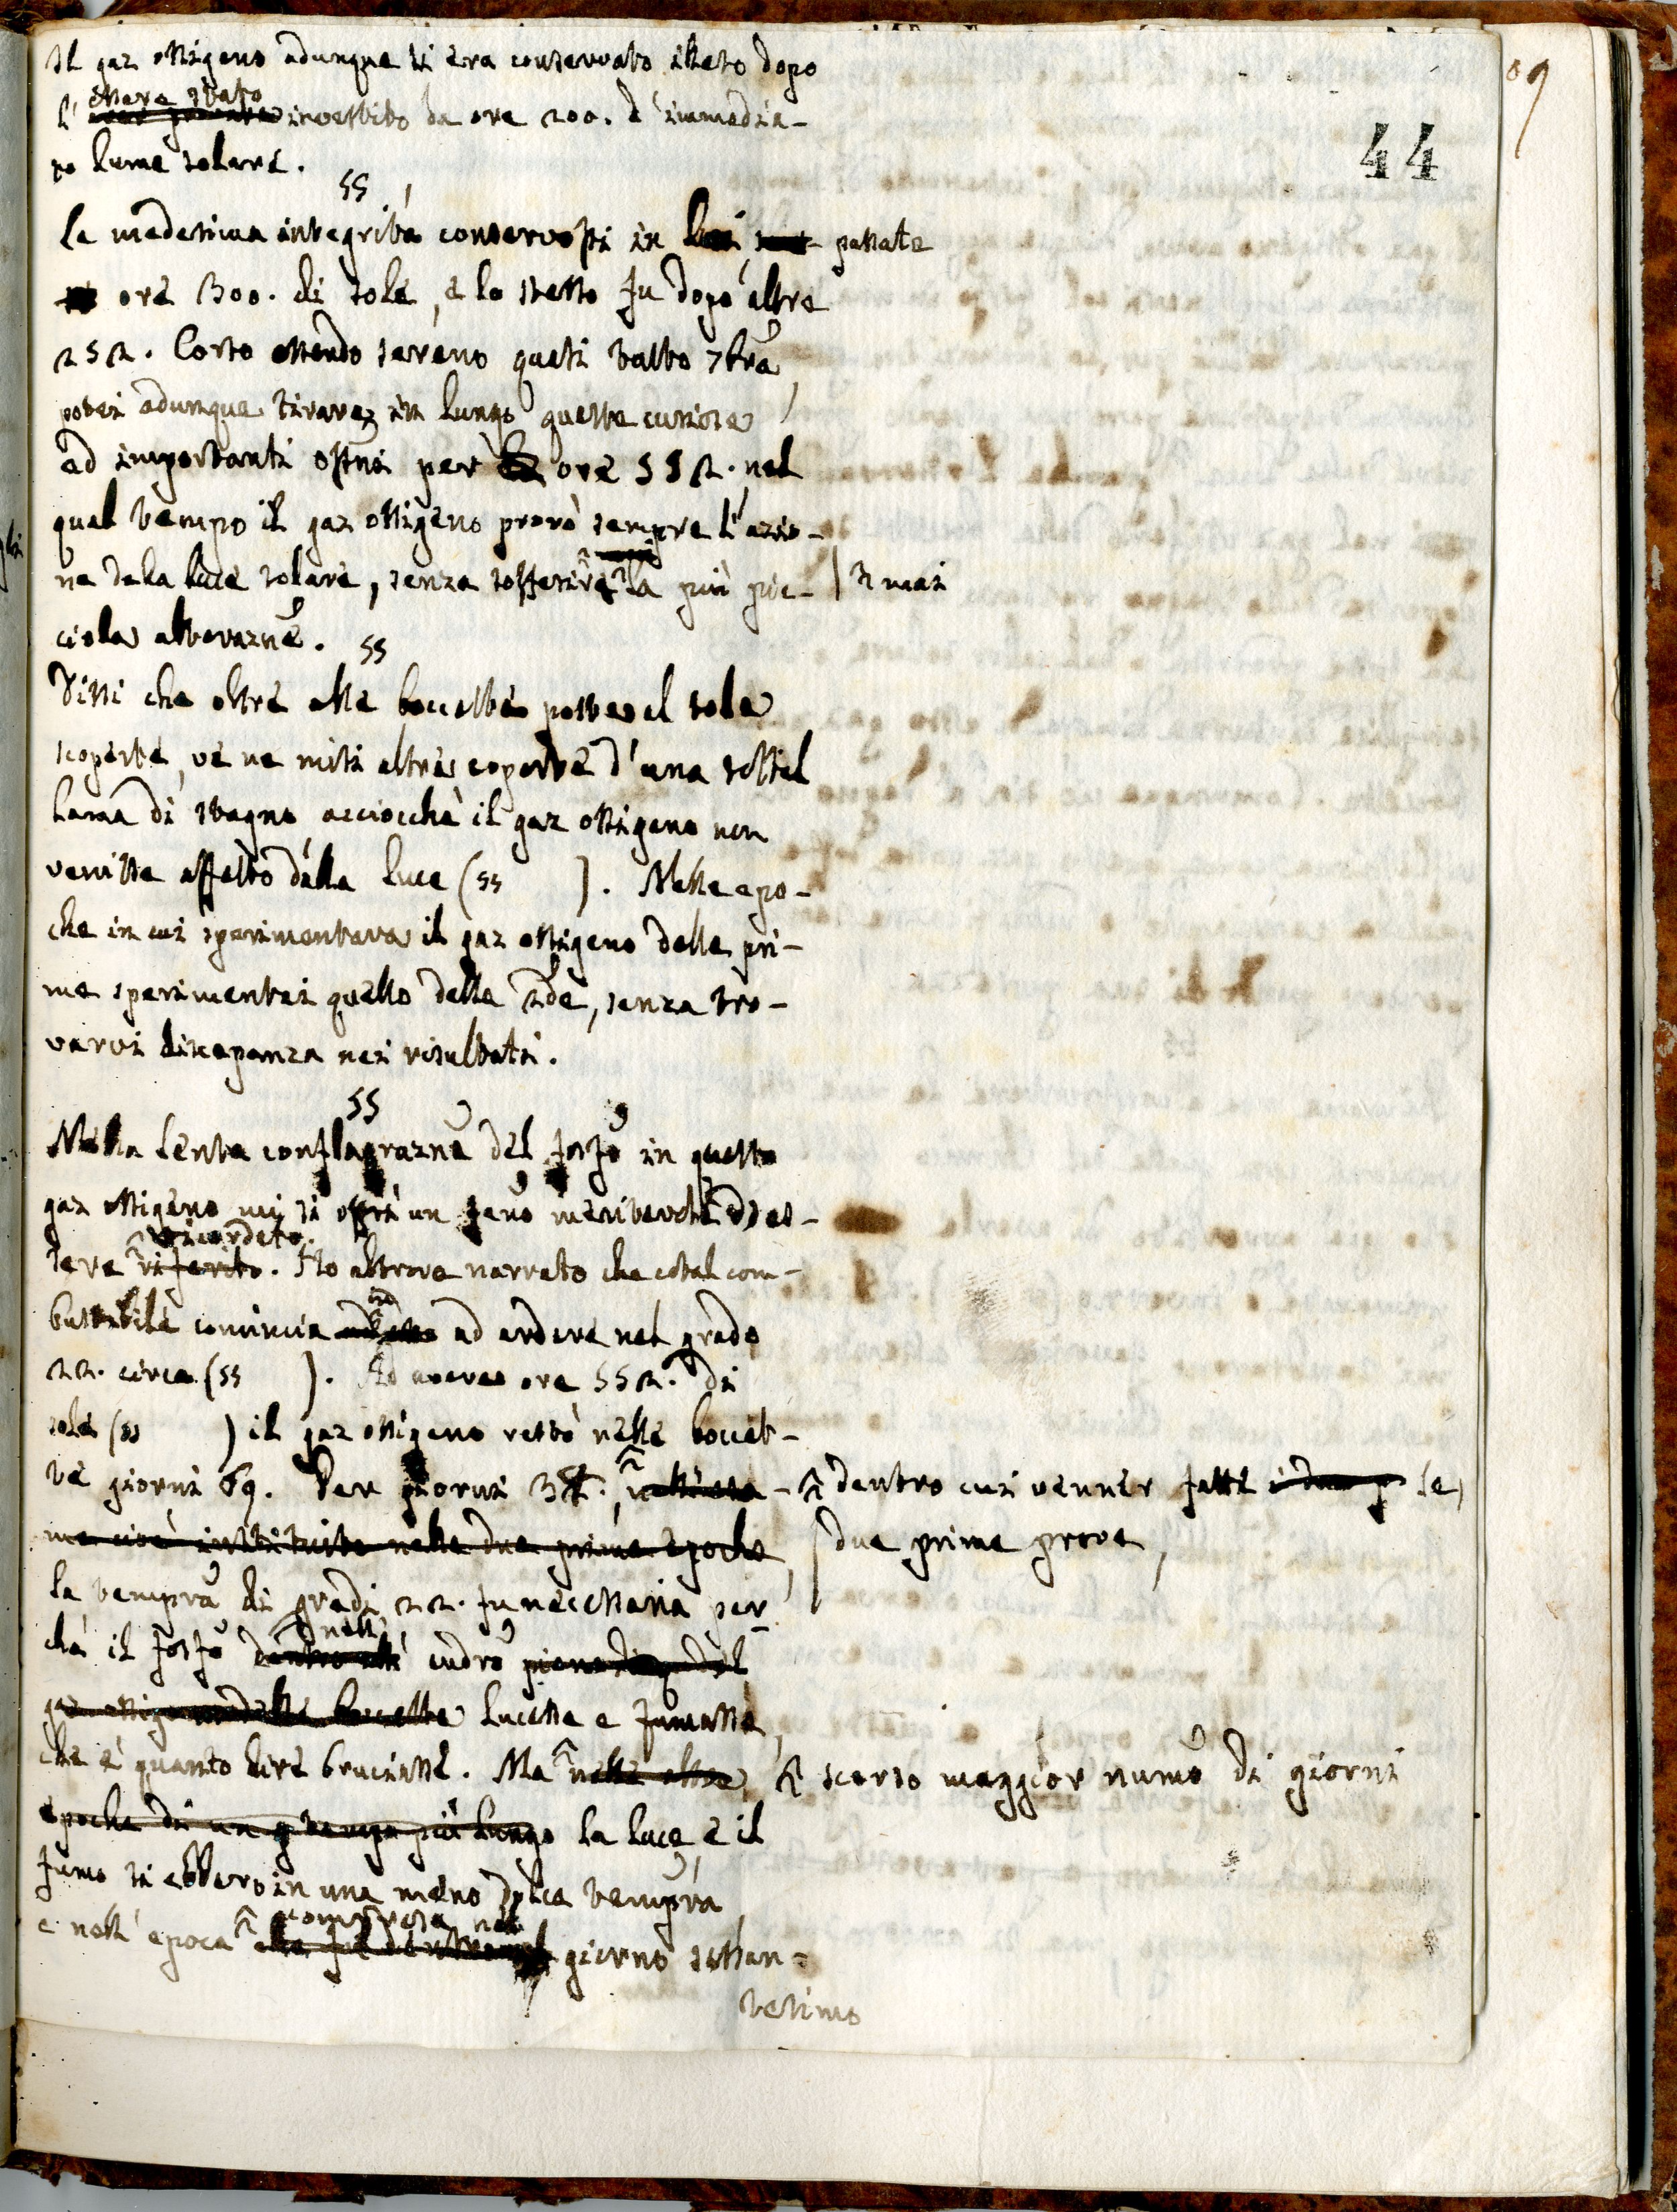 44
Il gaz ossigeno adunque si era conservato illeso dopo
l' essere stato investito da ore 200. d' immedia-
to lume solare.
§§
La medesima integrità conservossi in lui, passate
ore 300. di sole, e lo stesso fu dopo altre
252. Corto essendo sereno quasi tutto 7bre,
potei adunque tirare in lungo queste curiose
ed importanti ossni per ore 552. nel
qual tempo il gaz ossigeno provò sempre l' azio-
ne della luce solare, senza sofferire mai la più pic-
ciola alterazne.
§§
Dissi che oltre alle boccette poste al sole
scoperte, ve ne misi altre coperte d' una sottil
lama di stagno acciocchè il gaz ossigeno non
venisse affetto dalla luce (§§ ). Nelle epo-
che in cui sperimentava il gaz ossigeno delle pri-
me sperimentai quello delle 2de, senza tro-
varvi discrepanza nei risultati.
§§
Nella lenta conflagrazne del fosfo in questo
gaz ossigeno mi si offrì un feno meritevole d' es-
sere riferito ricordato. Ho altrove narrato che cotal com-
bustibile comincia ad ardere nel grado
22. circa (§§ ). Ad avere ore 552. di
sole (§§ ) il gaz ossigeno restò nelle boccet-
te giorni 69. Per giorni 34., dentro cui venner fatte le
due prime prove,
me cioè instituite nelle due prime epoche
la tempra di gradi 22. fu necessaria per-
chè il fosfo dentro nell' cudro
gaz ossigeno delle boccette lucesse e fumasse,
che è quanto dire bruciasse. Ma nelle altre scorso maggior numo di giorni
epoche di un tempo più lungo la luce, e il
fumo si ebbero in una meno dolce tempra
e nell' epoca compresa nel giorno sessan-
tesimo